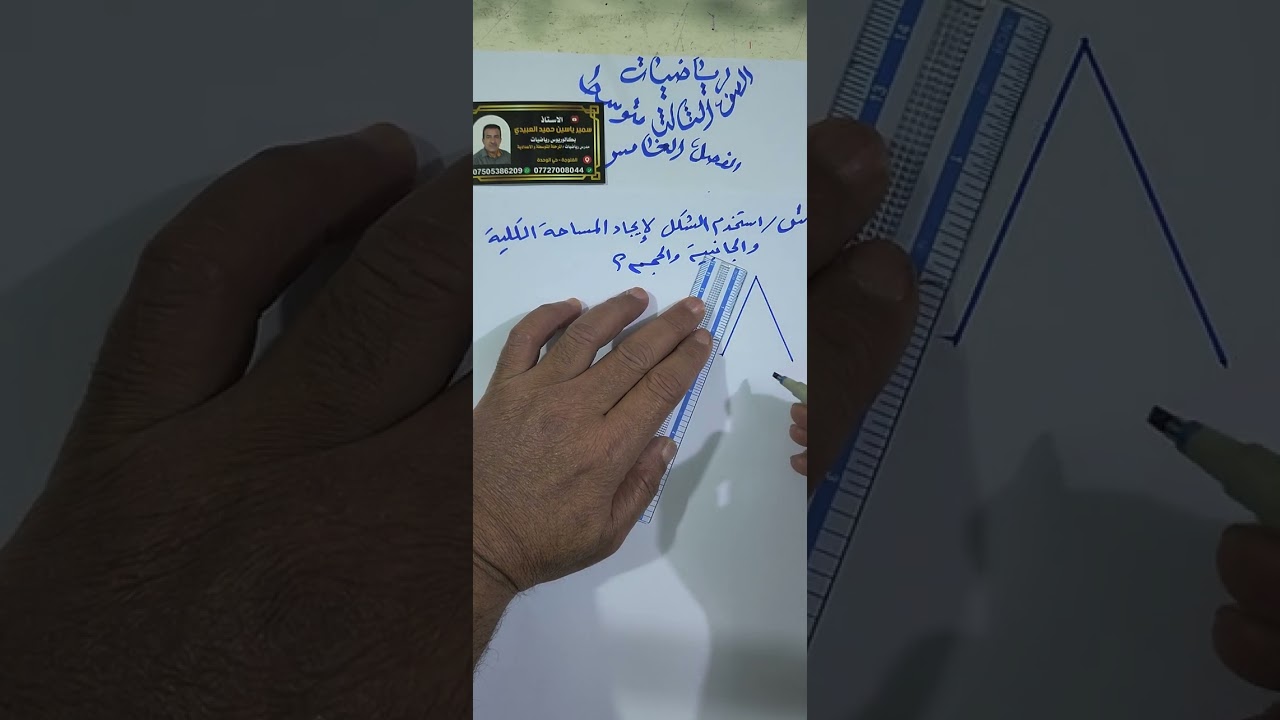 رياضيات
الصف الثالث متوسط
الفصل الخامس
الاستاذ
سمير ياسين حميد العبيدي
بكالوريوس رياضيات
مدرس رياضيات
الفلوجة - حي الوحدة
07505386209 07727008044
مثال / استخدم الشكل لإيجاد المساحة الكلية
والجانبية والحجم ؟